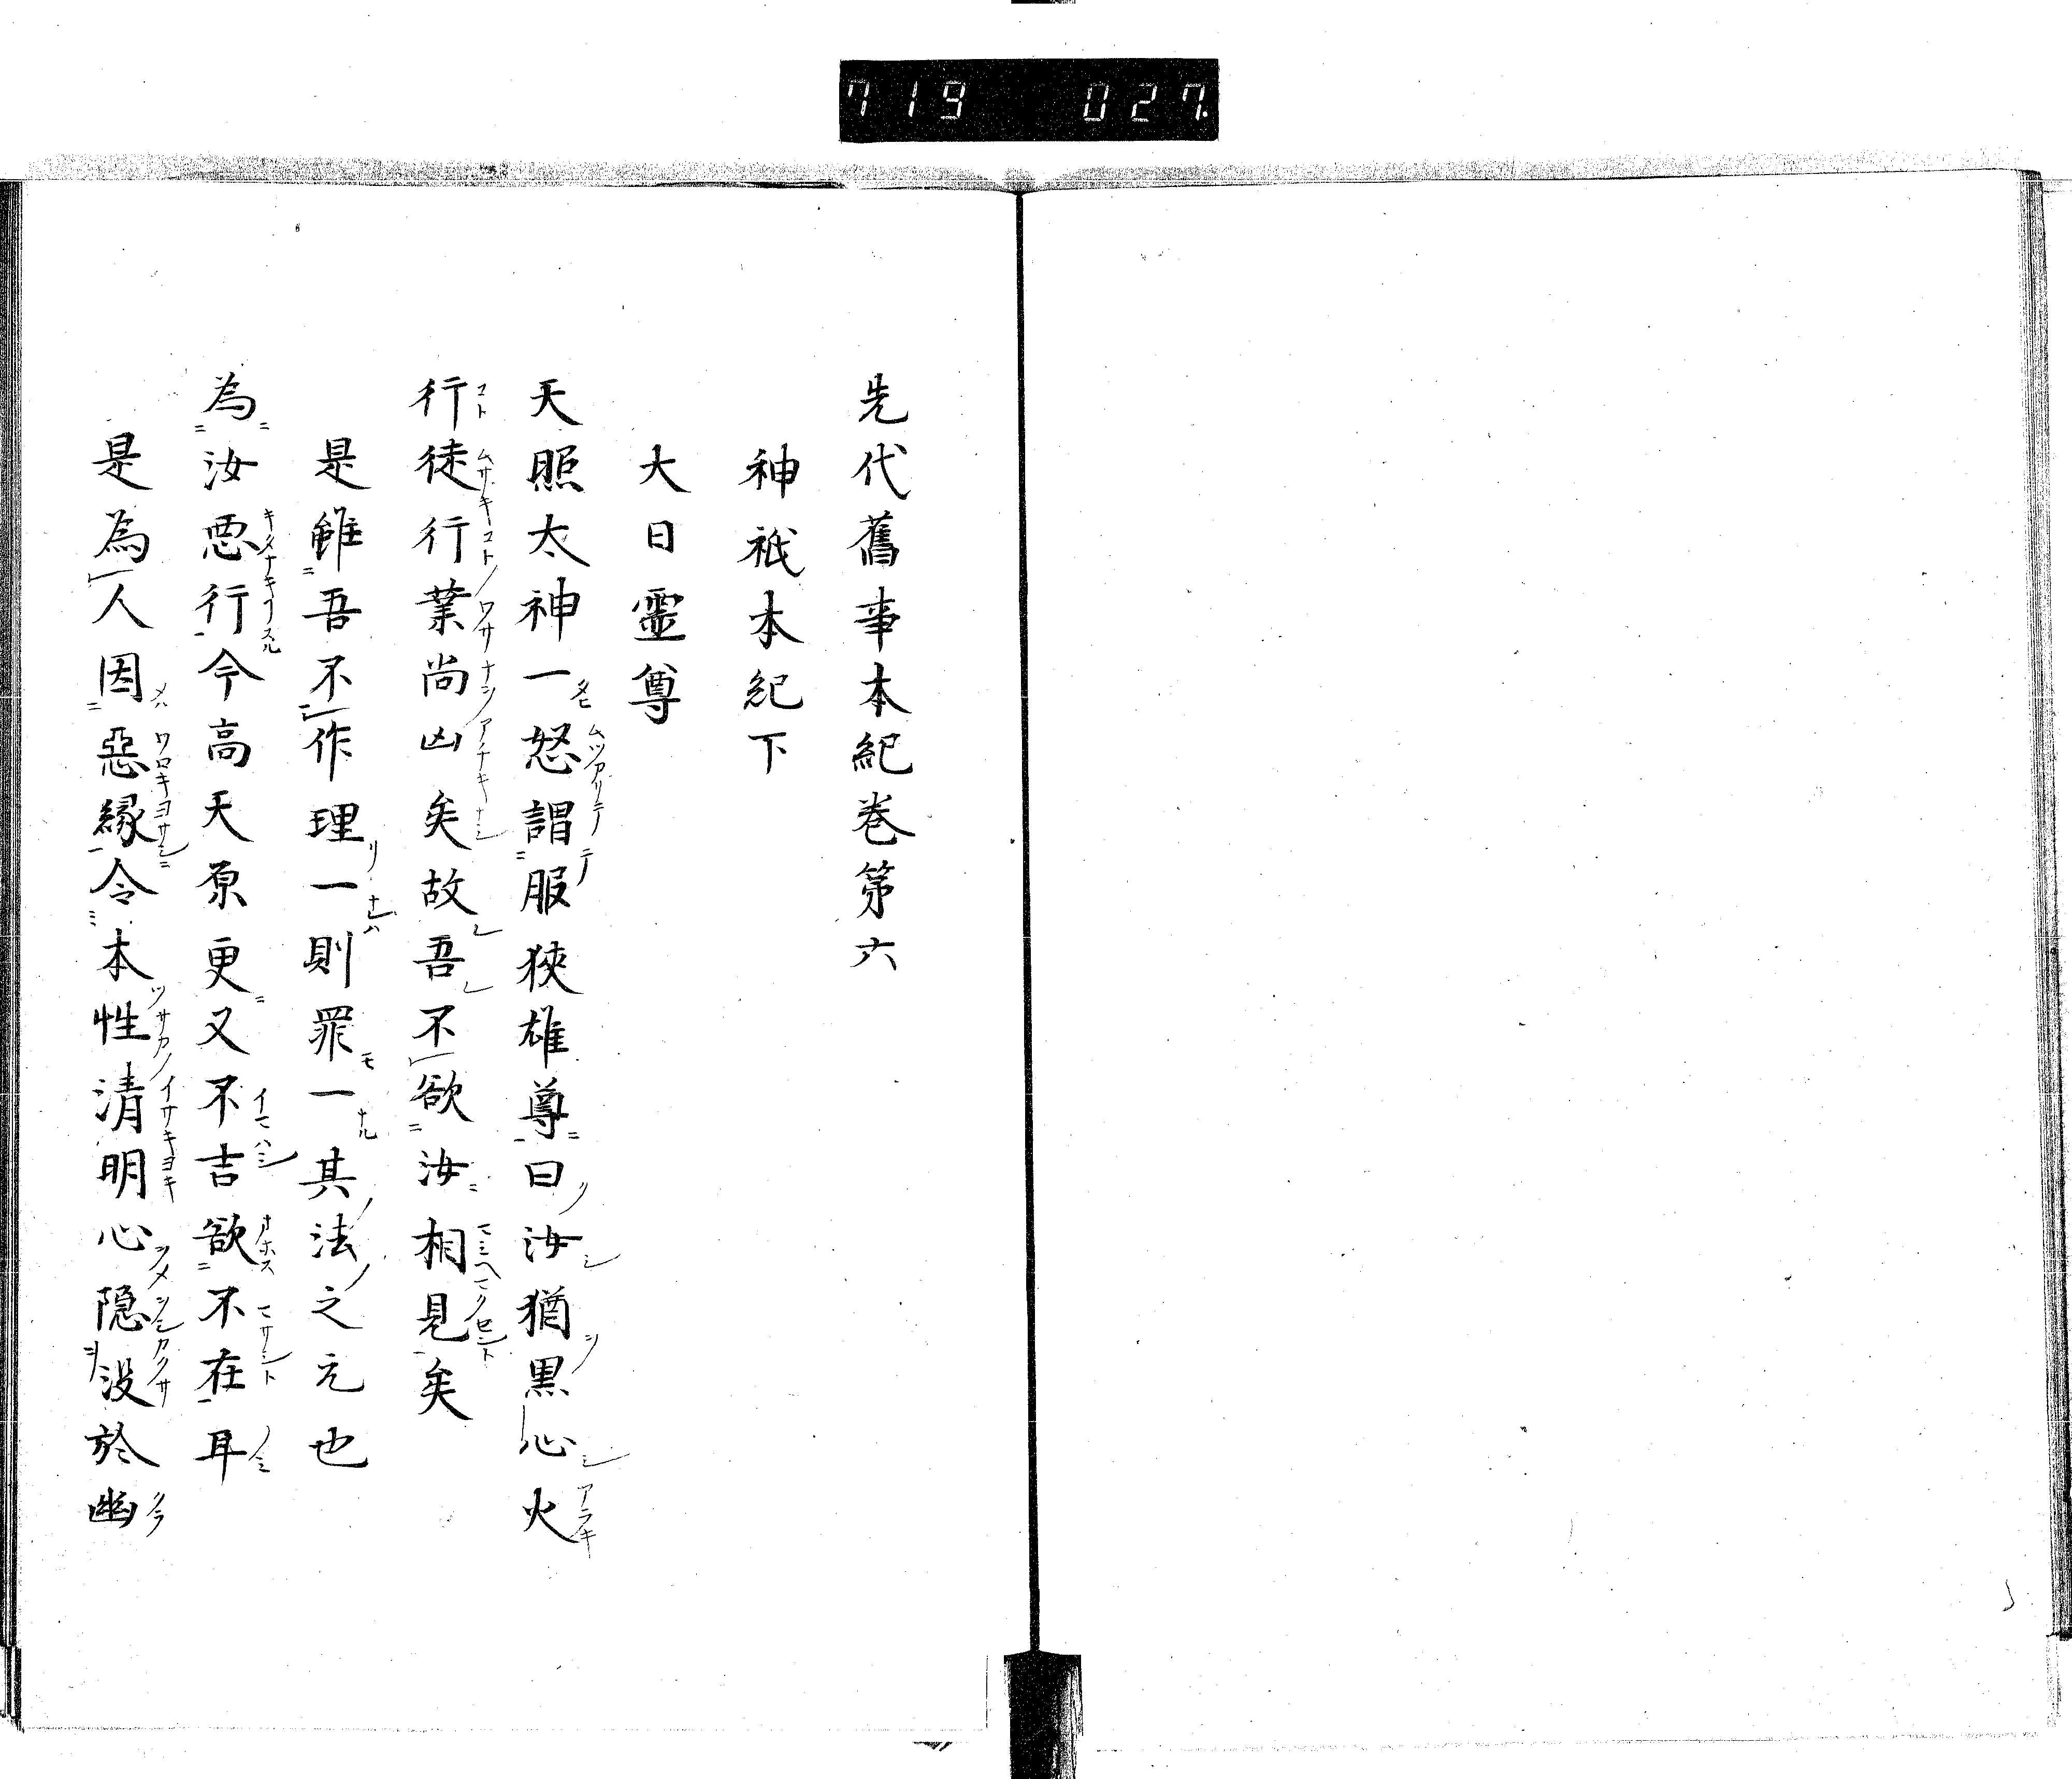 719 027
先代舊事本紀巻第六
神祇本紀下
大日霊尊
天照太神一怒謂服狹雄尊曰汝猶黒心火
行徒行業尚凶矣故吾不欲汝相見矣
是雖吾不作理一則罪一其法之元也
為汝悪行今高天原更又不吉欲不在耳
是為人因惡縁令本性清明心隠没於幽